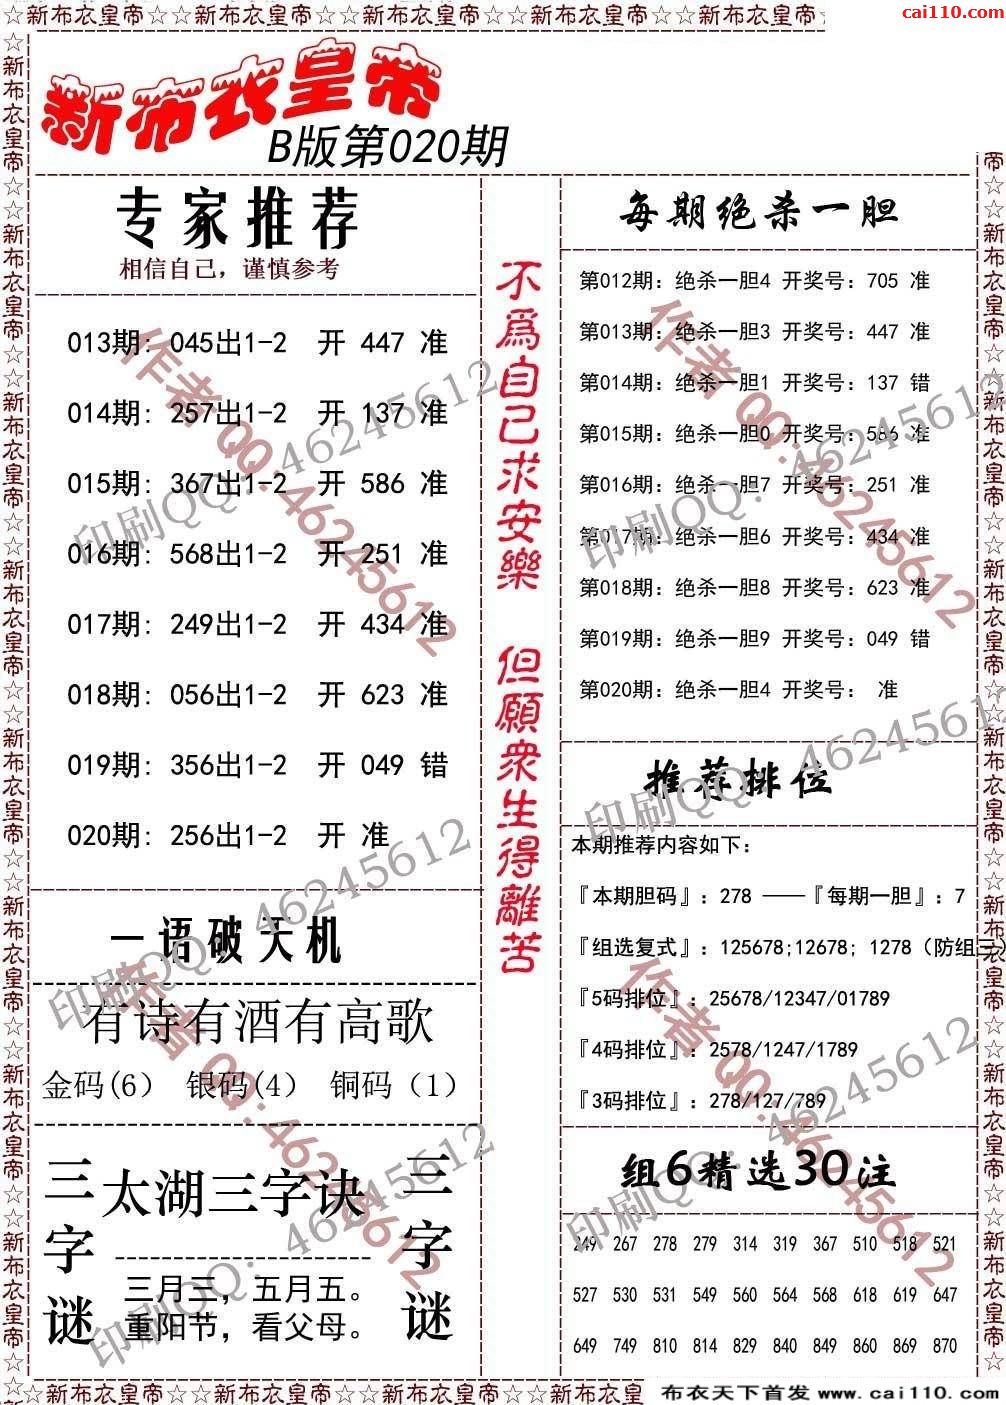 ☆新布衣皇帝☆新布衣皇帝☆新布衣皇帝☆新布衣皇帝☆新布衣皇帝☆新布衣皇帝☆
cai110.com
新布衣皇帝
B版第020期
专家推荐
相信自己，谨慎参考
013期: 045出1-2 开 447 准
014期: 257出1-2 开 137 准
015期: 367出1-2 开 586 准
016期: 568出1-2 开 251 准
017期: 249出1-2 开 434 准
018期: 056出1-2 开 623 准
019期: 356出1-2 开 049 错
020期: 256出1-2 开 准
一语破天机
有诗有酒有高歌
金码(6) 银码(4) 铜码（1）
三字谜
太湖三字诀
三月三，五月五。
重阳节，看父母。
三字谜
不爲自己求安樂 但願衆生得離苦
每期绝杀一胆
第012期: 绝杀一胆4 开奖号: 705 准
第013期: 绝杀一胆3 开奖号: 447 准
第014期: 绝杀一胆1 开奖号: 137 错
第015期: 绝杀一胆0 开奖号: 586 准
第016期: 绝杀一胆7 开奖号: 251 准
第017期: 绝杀一胆6 开奖号: 434 准
第018期: 绝杀一胆8 开奖号: 623 准
第019期: 绝杀一胆9 开奖号: 049 错
第020期: 绝杀一胆4 开奖号: 准
推荐排位
本期推荐内容如下：
『本期胆码』: 278 ——『每期一胆』: 7
『组选复式』: 125678;12678; 1278（防组三）
『5码排位』: 25678/12347/01789
『4码排位』: 2578/1247/1789
『3码排位』: 278/127/789
组6精选30注
249 267 278 279 314 319 367 510 518 521
527 530 531 549 560 564 568 618 619 647
649 749 810 814 829 840 849 860 869 870
作者 QQ: 46245612
印刷QQ: 46245612
作者 QQ: 46245612
印刷QQ: 46245612
印刷QQ: 46245612
印刷QQ: 46245612
作者 QQ: 46245612
作者 QQ: 46245612
印刷QQ: 46245612
印刷QQ: 46245612
☆新布衣皇帝☆新布衣皇帝☆新布衣皇帝☆新布衣皇帝☆新布衣皇
布衣天下首发 www.cai110.com